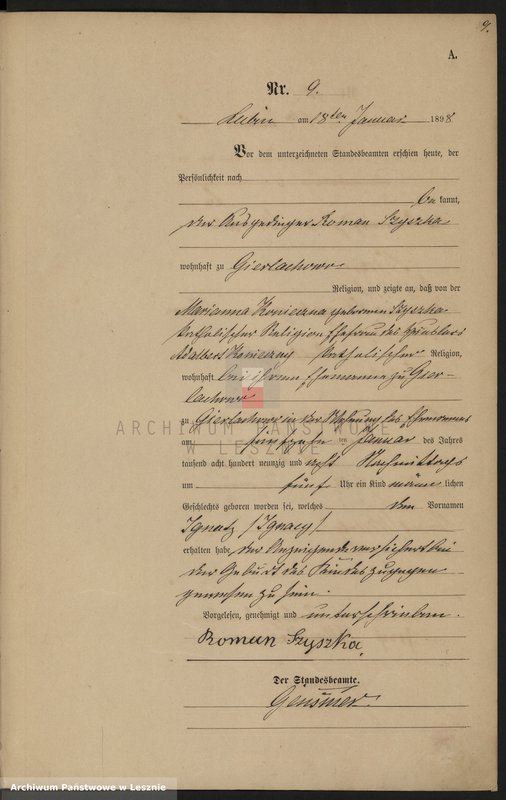 9.
A.
Nr. 9.
Lubin am 18ten Januar 1898.
Vor dem unterzeichneten Standesbeamten erschien heute, der
Persönlichkeit nach
bekannt,
der Ausgedinger Roman Szyszka
wohnhaft zu Gierlachowo
Religion, und zeigte an, daß von der
Marianna Konieczna geborenen Szyszka
katholischer Religion Ehefrau des Häuslers
Adalbert Konieczny katholischer Religion,
wohnhaft bei ihrem Ehemanne zu Gier-
lachowo
zu Gierlachowo in der Wohnung des Ehemannes
am fünfzehnten Januar des Jahres
tausend acht hundert neunzig und acht Nachmittags
um fünf Uhr ein Kind männlichen
Geschlechts geboren worden sei, welches den Vornamen
Ignatz /Ignacy/
erhalten habe, der Anzeigende versichert bei
der Geburt des Kindes zugegen
gewesen zu sein.
Vorgelesen, genehmigt und unterschrieben.
Roman Szyszka
Der Standesbeamte.
ARCHIWUM PAŃSTWOWE
W LESZNIE
Archiwum Państwowe w Lesznie